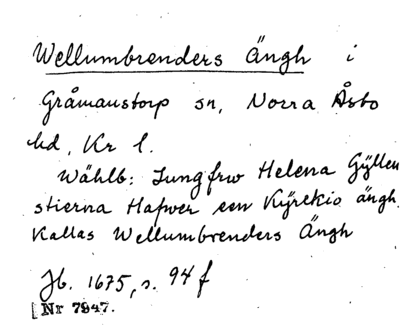 Wellumbrenders Ängh i
Gråmanstorp sn, Norra Åsbo
hd, Kr l.
Wählb: Jungfrw Helena Gÿllen
stierna Hafwer een Kÿrekio ängh.
Kallas Wellumbrenders Ängh
Jb. 1675, s. 94 f
[Nr 7947.